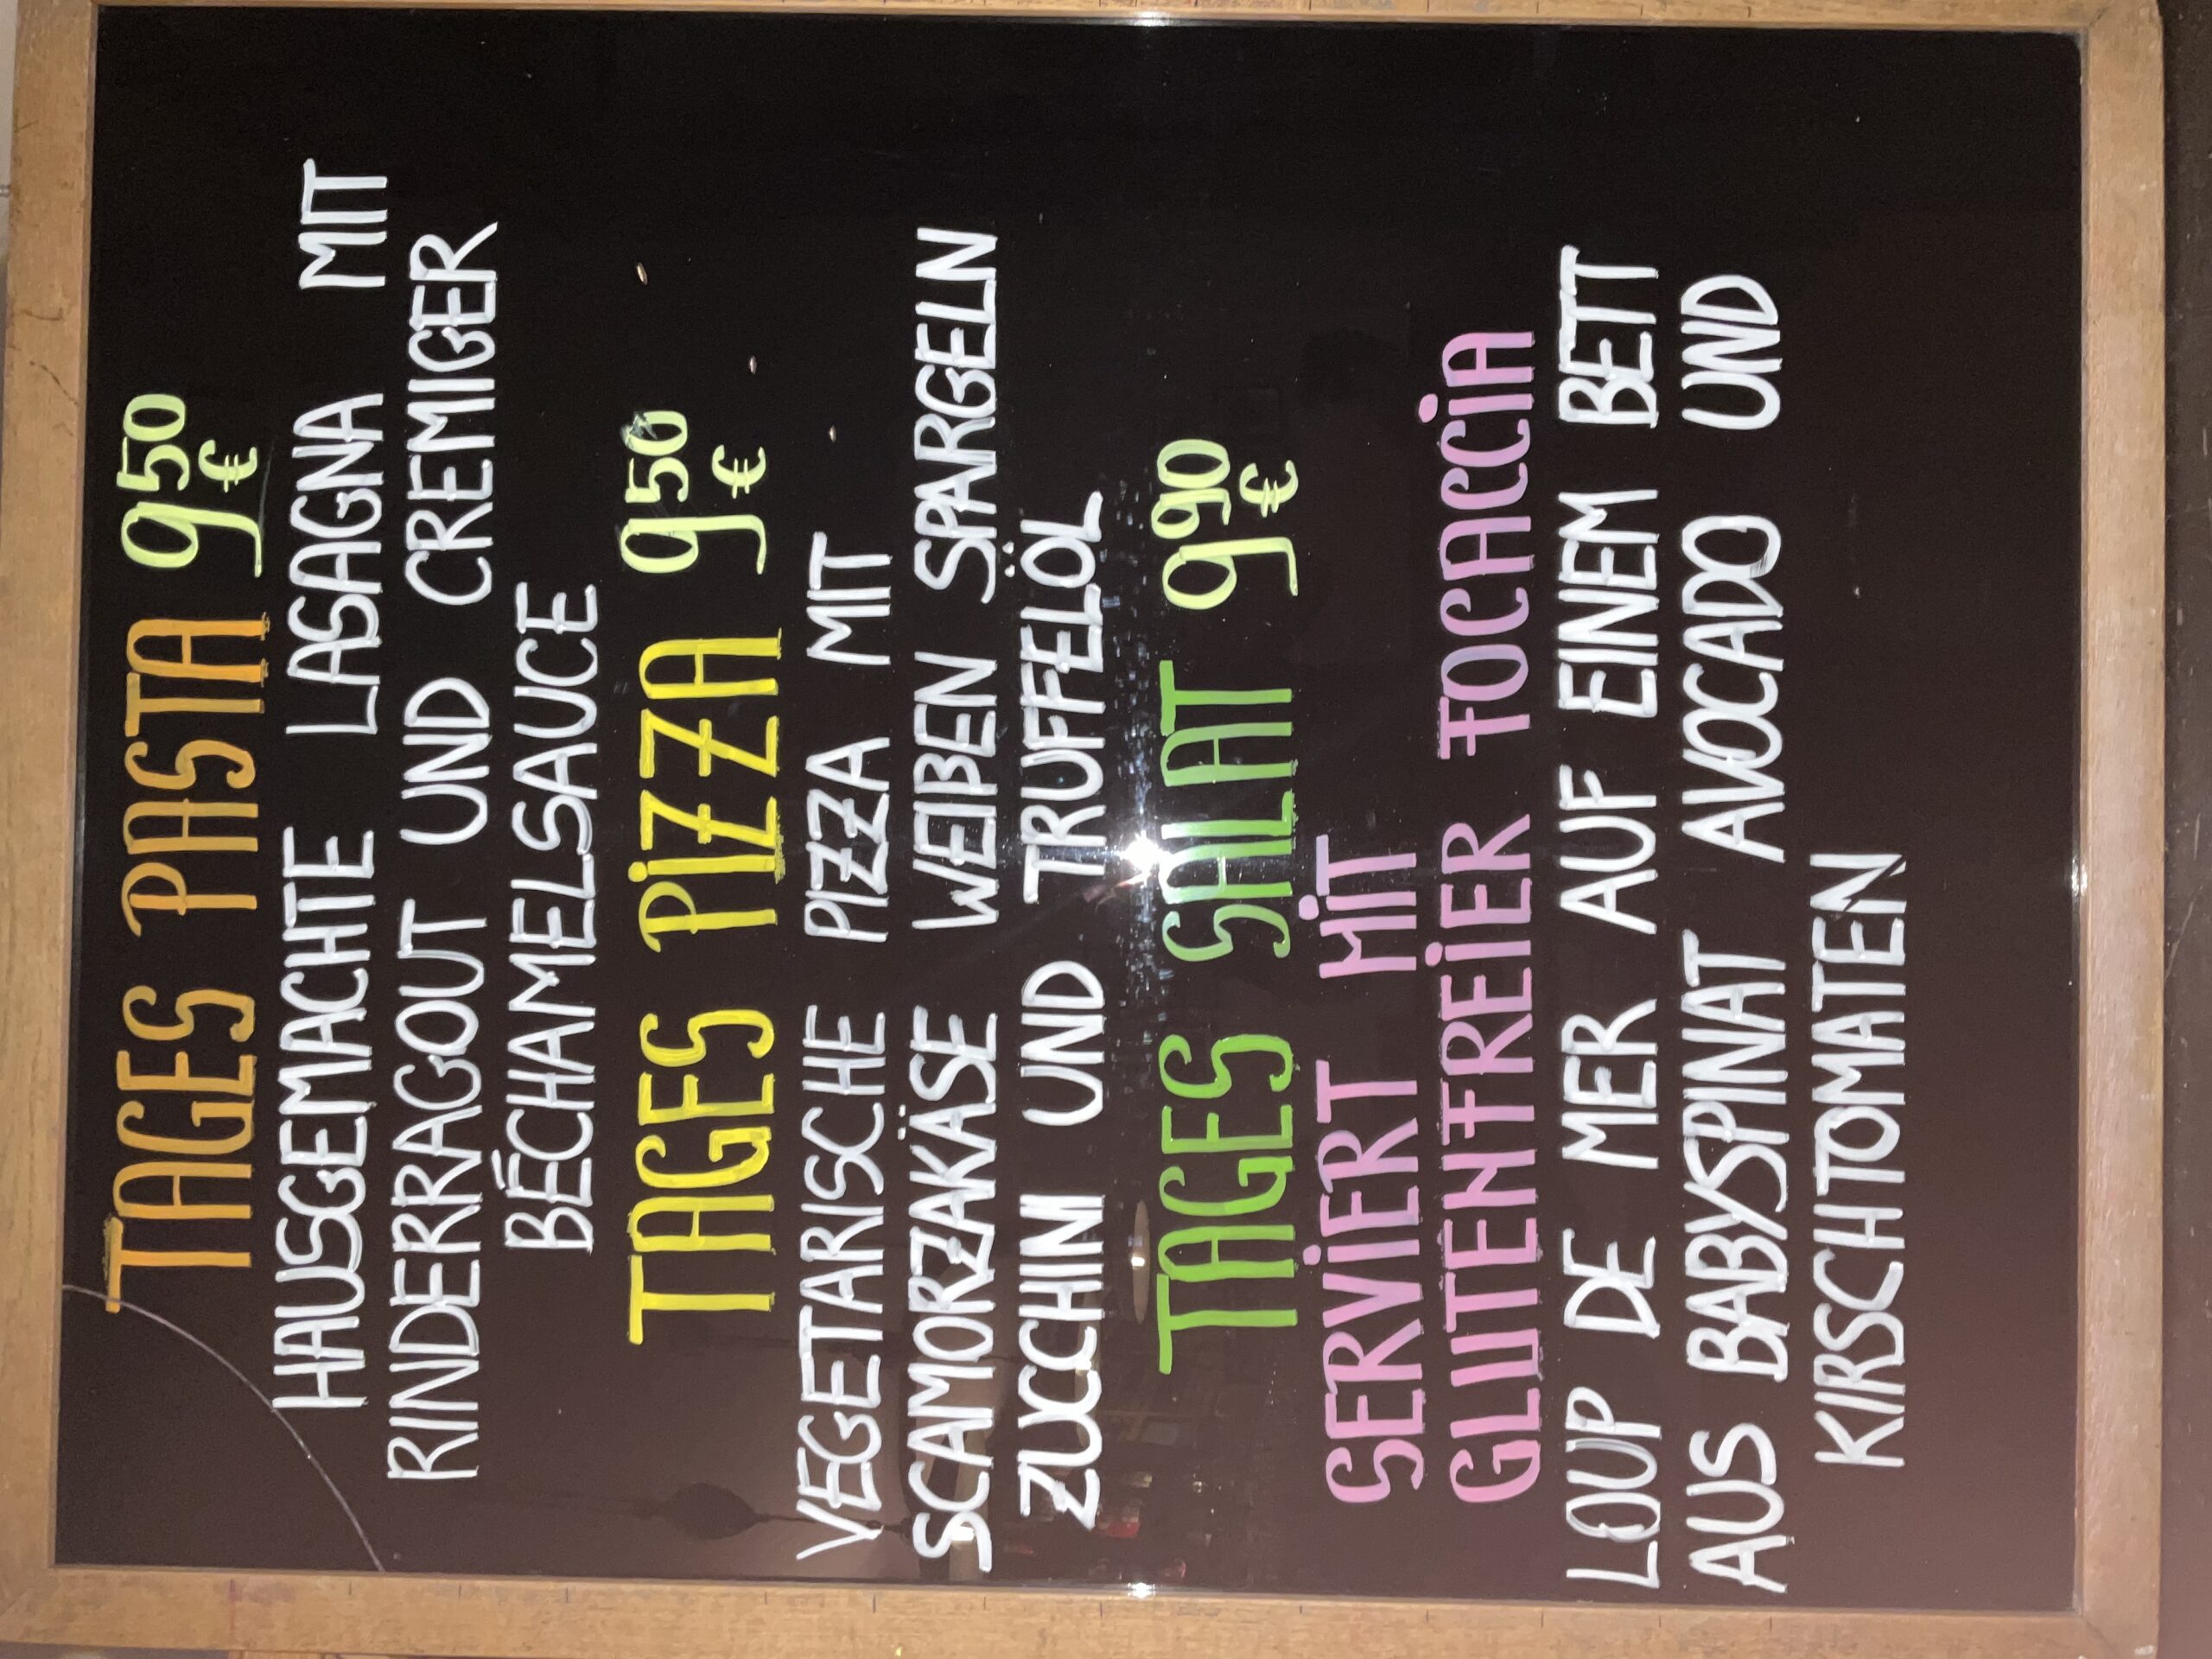 TAGES PASTA 9,50 €
HAUSGEMACHTE LASAGNA MIT
RINDERRAGOUT UND CREMIGER
BÉCHAMELSAUCE
TAGES PiZZA 9,50 €
VEGETARISCHE PIZZA MIT
SCAMORZAKÄSE WEIßEN SPARGELN
ZUCCHINI UND TRUFFELÖL
TAGES SALAT 9,90 €
SERViERT MiT
GLUTENFREiER FOCACCiA
LOUP DE MER AUF EINEM BETT
AUS BABYSPINAT AVOCADO UND
KIRSCHTOMATEN